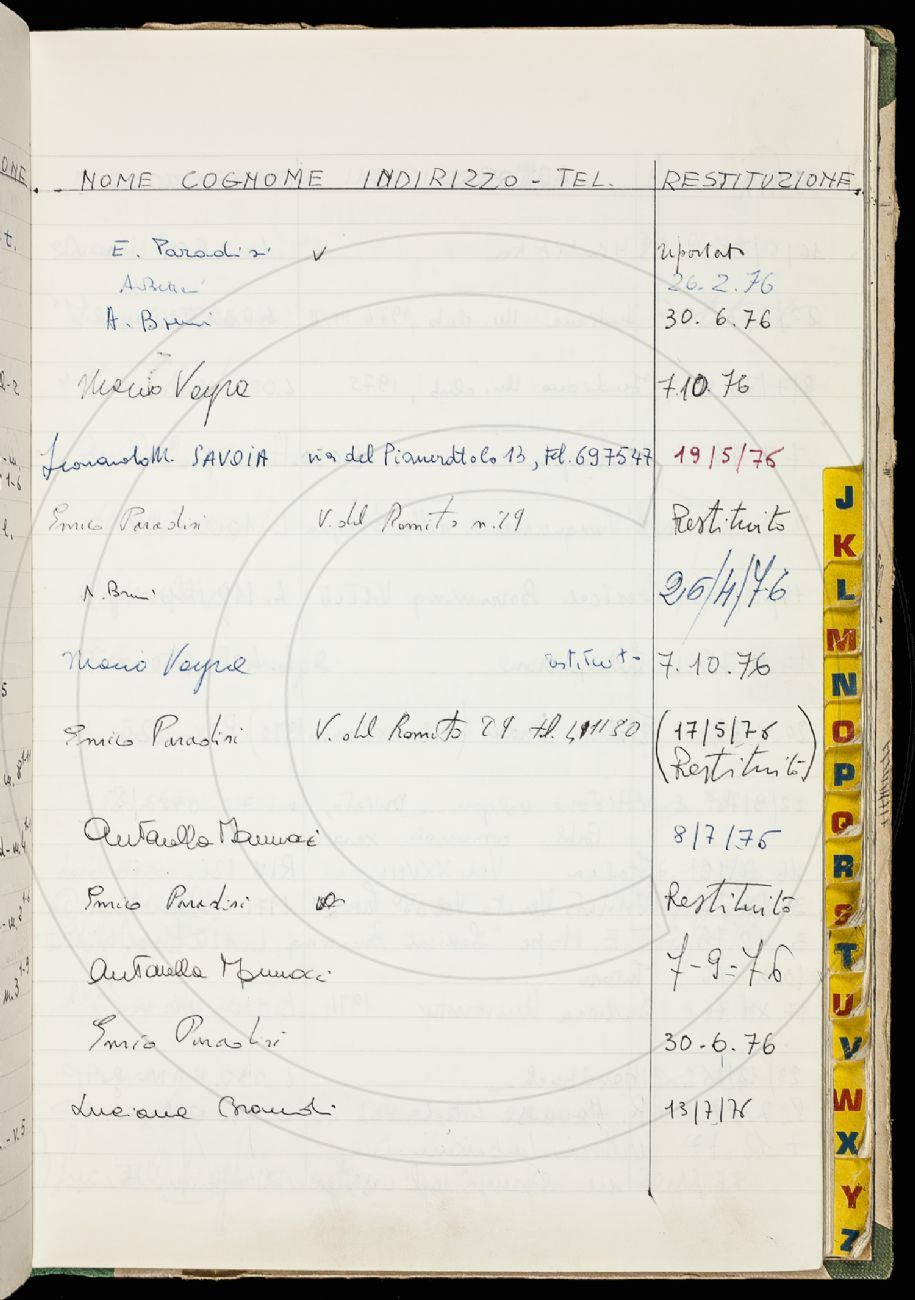 NOME COGNOME INDIRIZZO - TEL. RESTITUZIONE
E. Paradisi v riportato
26.2.76
A. Bruni 30.6.76
Mario Vayra 7.10.76
Leonardo M. SAVOIA via del Pianerottolo 13, tel. 697547 19/5/76
Enrico Paradisi V. del Romito n. 29 Restituito
A. Bruni 26/4/76
Mario Vayra restituito 7.10.76
Enrico Paradisi V. del Romito 29 tel. (17/5/76
Restituito)
Antonella Mannoci 8/7/76
Enrico Paradisi Restituito
Antonella Mannoci 7-9-76
Enrico Paradisi 30.6.76
Luciana Brandi 13/7/76
J
K
L
M
N
O
P
Q
R
S
T
U
V
W
X
Y
Z